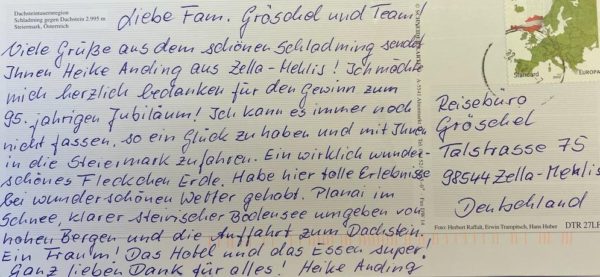 Dachsteintauernregion
Schladming gegen Dachstein 2.995 m
Steiermark, Österreich
Liebe Fam. Gröschel und Team!
Viele Grüße aus dem schönen Schladming sendet
Ihnen Heike Anding aus Zella-Mehlis! Ich möchte
mich herzlich bedanken für den Gewinn zum
95. jährigen Jubiläum! Ich kann es immer noch
nicht fassen, so ein Glück zu haben und mit Ihnen
in die Steiermark zu fahren. Ein wirklich wunder
schönes Fleckchen Erde. Habe hier tolle Erlebnisse
bei wunderschönen Wetter gehabt. Planai im
Schnee, klarer steirischer Bodensee umgeben von
hohen Bergen und die Auffahrt zum Dachstein.
Ein Traum! Das Hotel und das Essen super!
Ganz lieben Dank für alles! Heike Anding
Standard
EUROPA
Reisebüro
Gröschel
Talstrasse 75
98544 Zella-Mehlis
Deutschland
Foto: Herbert Raffalt, Erwin Trampitsch, Hans Huber
DTR 27LE